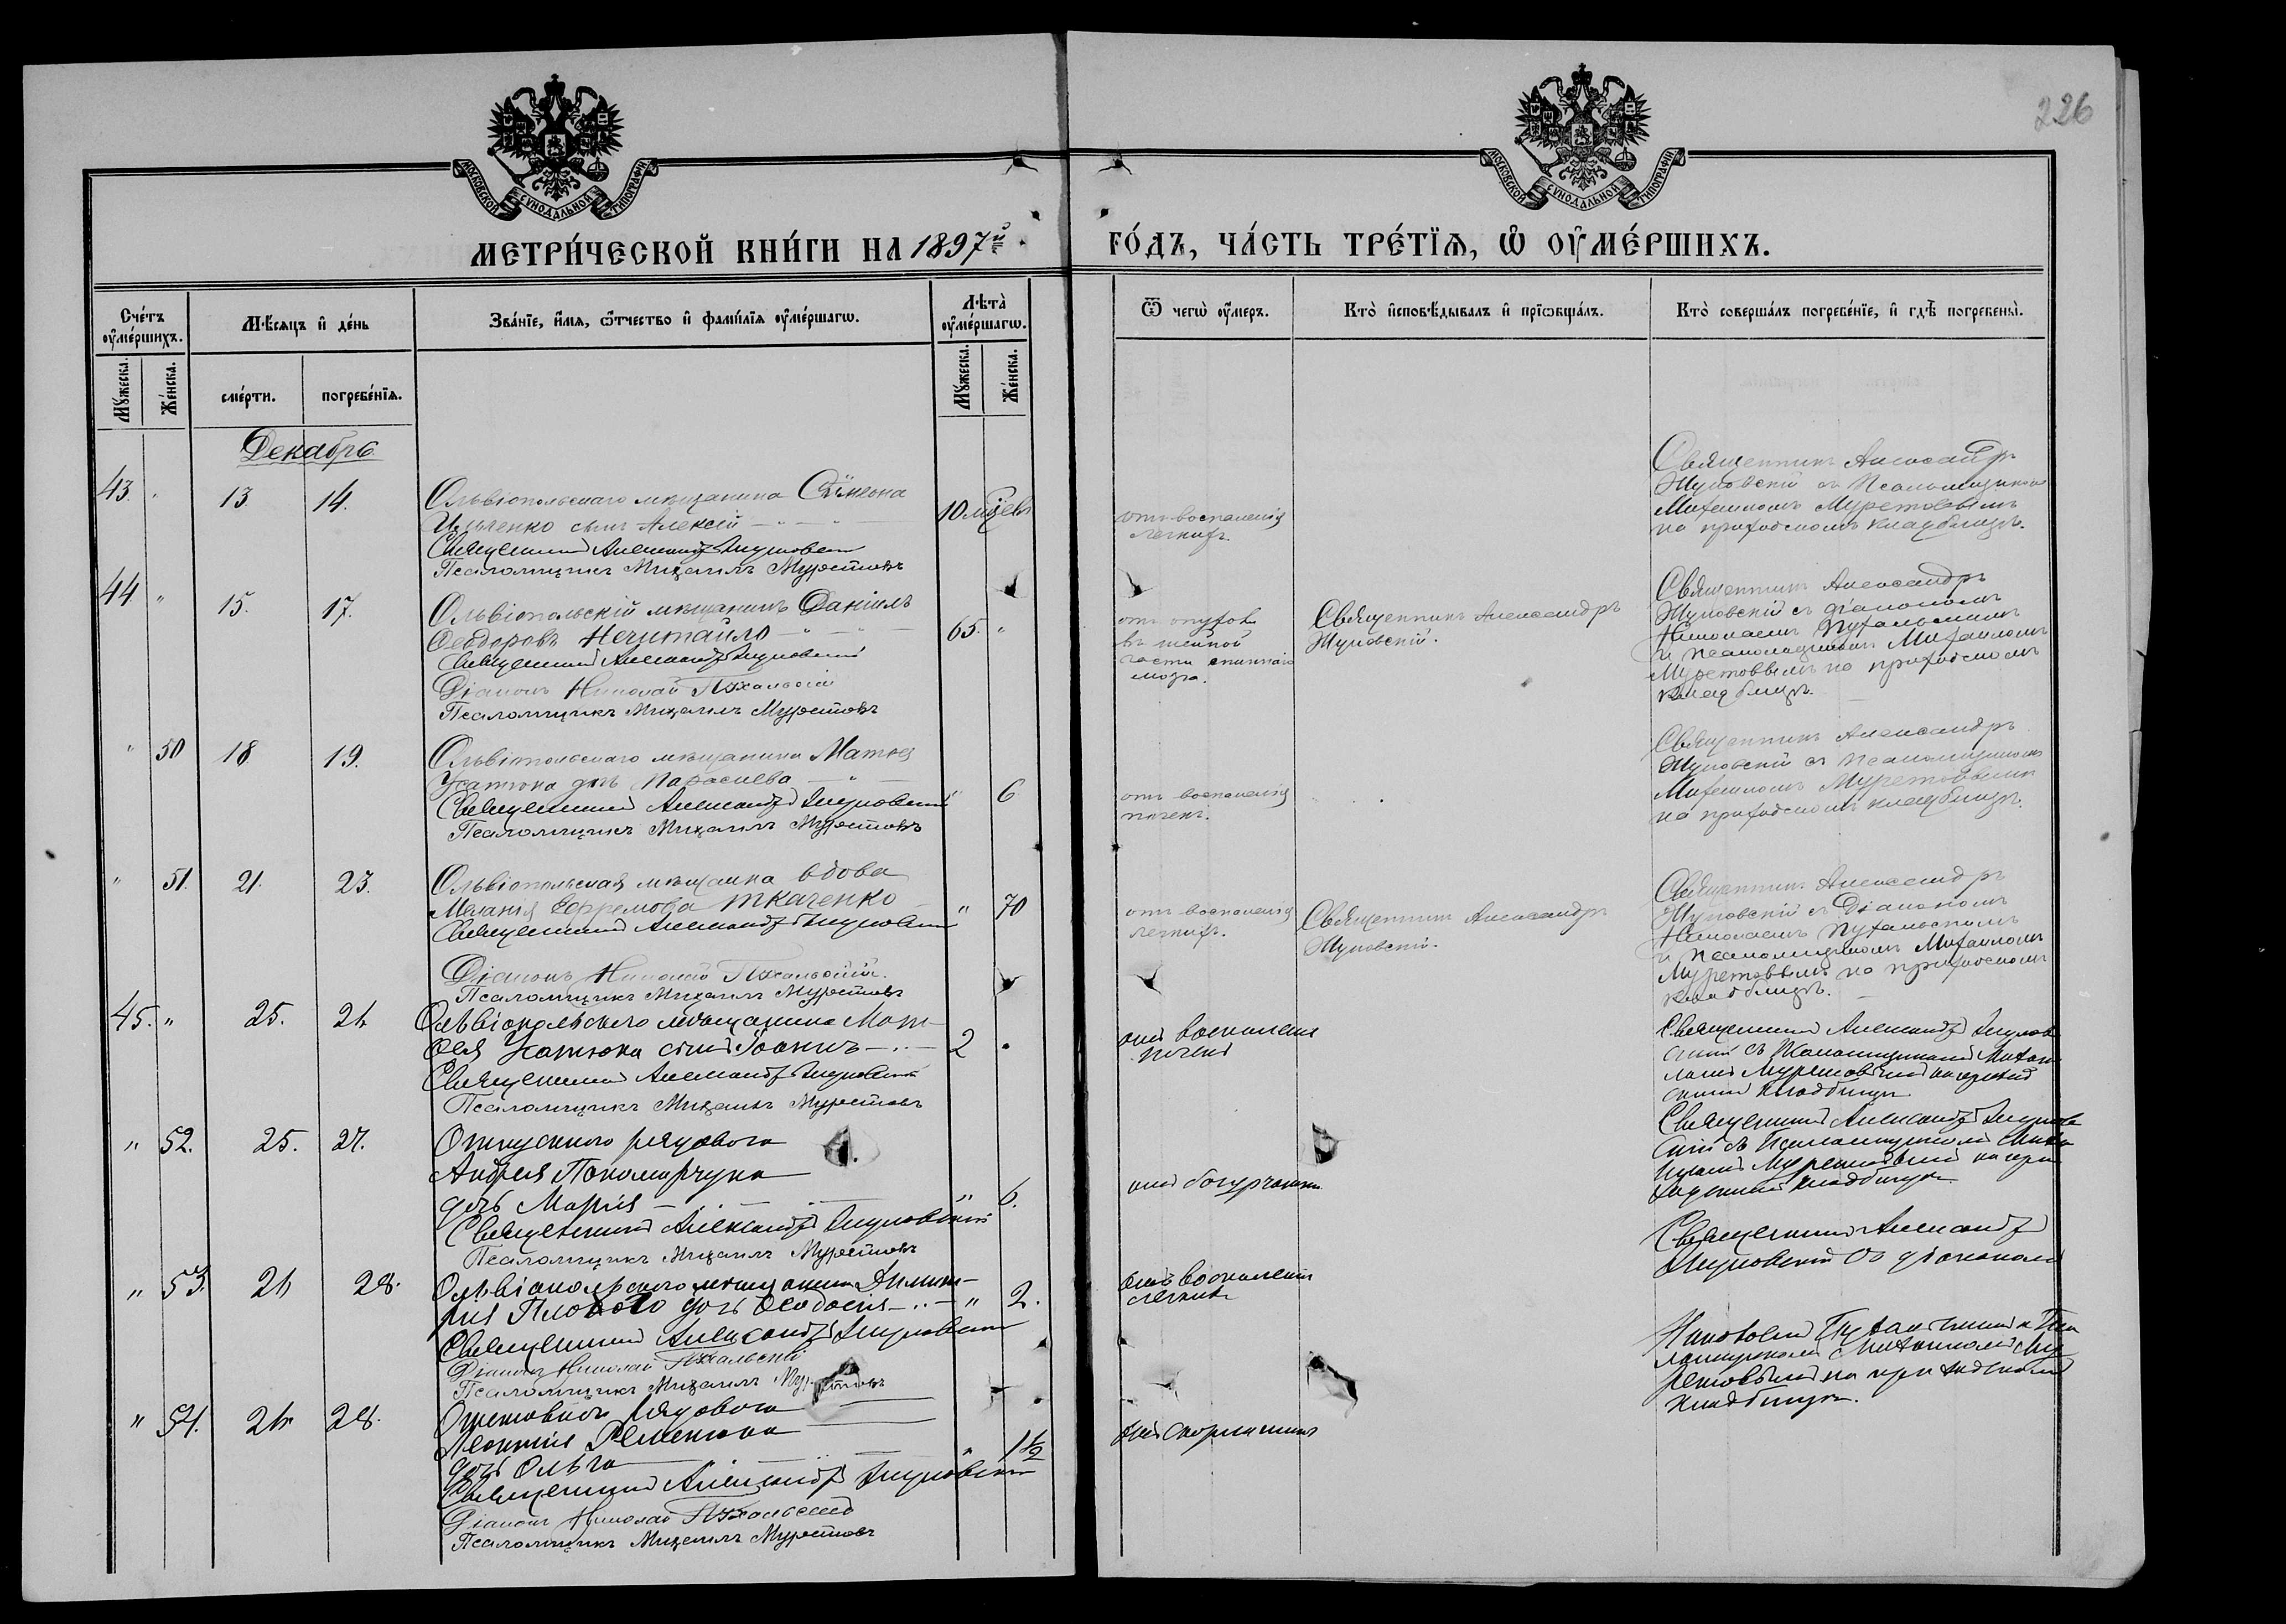 226
МОСКОВСКОЙ СУНОДАЛЬНОЙ ТИПОГРАФІИ
МОСКОВСКОЙ СУНОДАЛЬНОЙ ТИПОГРАФІИ
МЕТРИ́ЧЕСКОЙ КНИ́ГИ НА 1897й
ГО́ДЪ, ЧА́СТЬ ТРЕ́ТЇѦ, Ѡ҆ ОУ҆МЕ́РШИХЪ.
Сче́тъ оу҆ме́ршихъ.
Мꙋ́жеска.
Же́нска.
Мѣ́сяцъ и҆ де́нь
сме́рти.
погребе́нїѧ.
Зва́нїе, и҆́мѧ, ѻ҆́тчество и҆ фамі́лїѧ оу҆ме́ршагѡ.
Лѣта̀ оу҆ме́ршагѡ.
Мꙋ́жеска.
Же́нска.
Ѿ чегѡ̀ оу҆́меръ.
Кто̀ и҆сповѣ́дывалъ и҆ прїѡбща́лъ.
Кто̀ соверша́лъ погребе́нїе, и҆ гдѣ̀ погребены̀.
Декабрь
43. " 13 14.
Ольвіопольскаго мѣщанина Сѵмеона
сынъ Алексій
10 мѣсяцевъ
Священникъ Александръ Жуковскій
Псаломщикъ Михаилъ Муретовъ
отъ воспаленія
легкихъ.
Священникъ Александръ
Жуковскій съ Псаломщикомъ
Михаиломъ Муретовымъ
на приходскомъ кладбищѣ.
44 " 15. 17.
Ольвіопольскій мѣщанинъ Даніилъ
Ѳеодоровъ Нечитайло
65. "
Священникъ Александръ Жуковскій
Діаконъ Николай Пухальскій
Псаломщикъ Михаилъ Муретовъ
отъ опухоли
въ шейной
части спиннаго
мозга.
Священникъ Александръ
Жуковскій.
Священникъ Александръ
Жуковскій съ діакономъ
Николаемъ Пухальскимъ
и псаломщикомъ Михаиломъ
Муретовымъ на приходскомъ
кладбищѣ.
" 50 18 19.
Ольвіопольскаго мѣщанина Матѳея
Усатюка дочь Параскева
" 6
Священникъ Александръ Жуковскій
Псаломщикъ Михаилъ Муретовъ
отъ воспаленія
почекъ.
Священникъ Александръ
Жуковскій съ псаломщикомъ
Михаиломъ Муретовымъ
на приходскомъ кладбищѣ.
" 51. 21. 23.
Ольвіопольская мѣщанка вдова
Меланія Ефремова Ткаченко
" 70
Священникъ Александръ Жуковскій
Діаконъ Николай Пухальскій.
Псаломщикъ Михаилъ Муретовъ
отъ воспаленія
легкихъ.
Священникъ Александръ
Жуковскій.
Священник. Александръ
Жуковскій съ Діакономъ
Николаемъ Пухальскимъ
и псаломщикомъ Михаиломъ
Муретовымъ на приходскомъ
кладбищѣ.
45. " 25. 26
Ольвіопольскаго мѣщанина Мат-
ѳея Усатюка сынъ Іоаннъ
2 "
Священникъ Александръ Жуковскій
Псаломщикъ Михаилъ Муретовъ
отъ воспаленія
почекъ
Священникъ Александръ Жуков
скій съ Псаломщикомъ Михаи
ломъ Муретовымъ на приход
скомъ кладбищѣ
" 52. 25. 27.
Отпускного рядового
Андрея Пономарчука
дочь Марія
" 6.
Священникъ Александръ Жуковскій
Псаломщикъ Михаилъ Муретовъ
отъ бугорчатки
Священникъ Александръ Жуков
скій съ Псаломщикомъ Миха
иломъ Муретовымъ на при
ходскомъ кладбищѣ.
" 53. 26 28.
Ольвіопольскаго мѣщанина Димит-
рія дочь Ѳеодосія
" 2.
Священникъ Александръ Жуковскій
Діаконъ Николай Пухальскій
Псаломщикъ Михаилъ Муретовъ
отъ воспаленія
легкихъ
Священникъ Александръ
Жуковскій со діакономъ
Николаемъ Пухальскимъ и Пса
ломщикомъ Михаиломъ Му
ретовымъ на приходскомъ
кладбищѣ.
" 54. 26 28.
рядового
Леонтія
дочь Ольга
" 1½
Священникъ Александръ Жуковскій
Діаконъ Николай Пухальскій
Псаломщикъ Михаилъ Муретовъ
отъ скарлатины